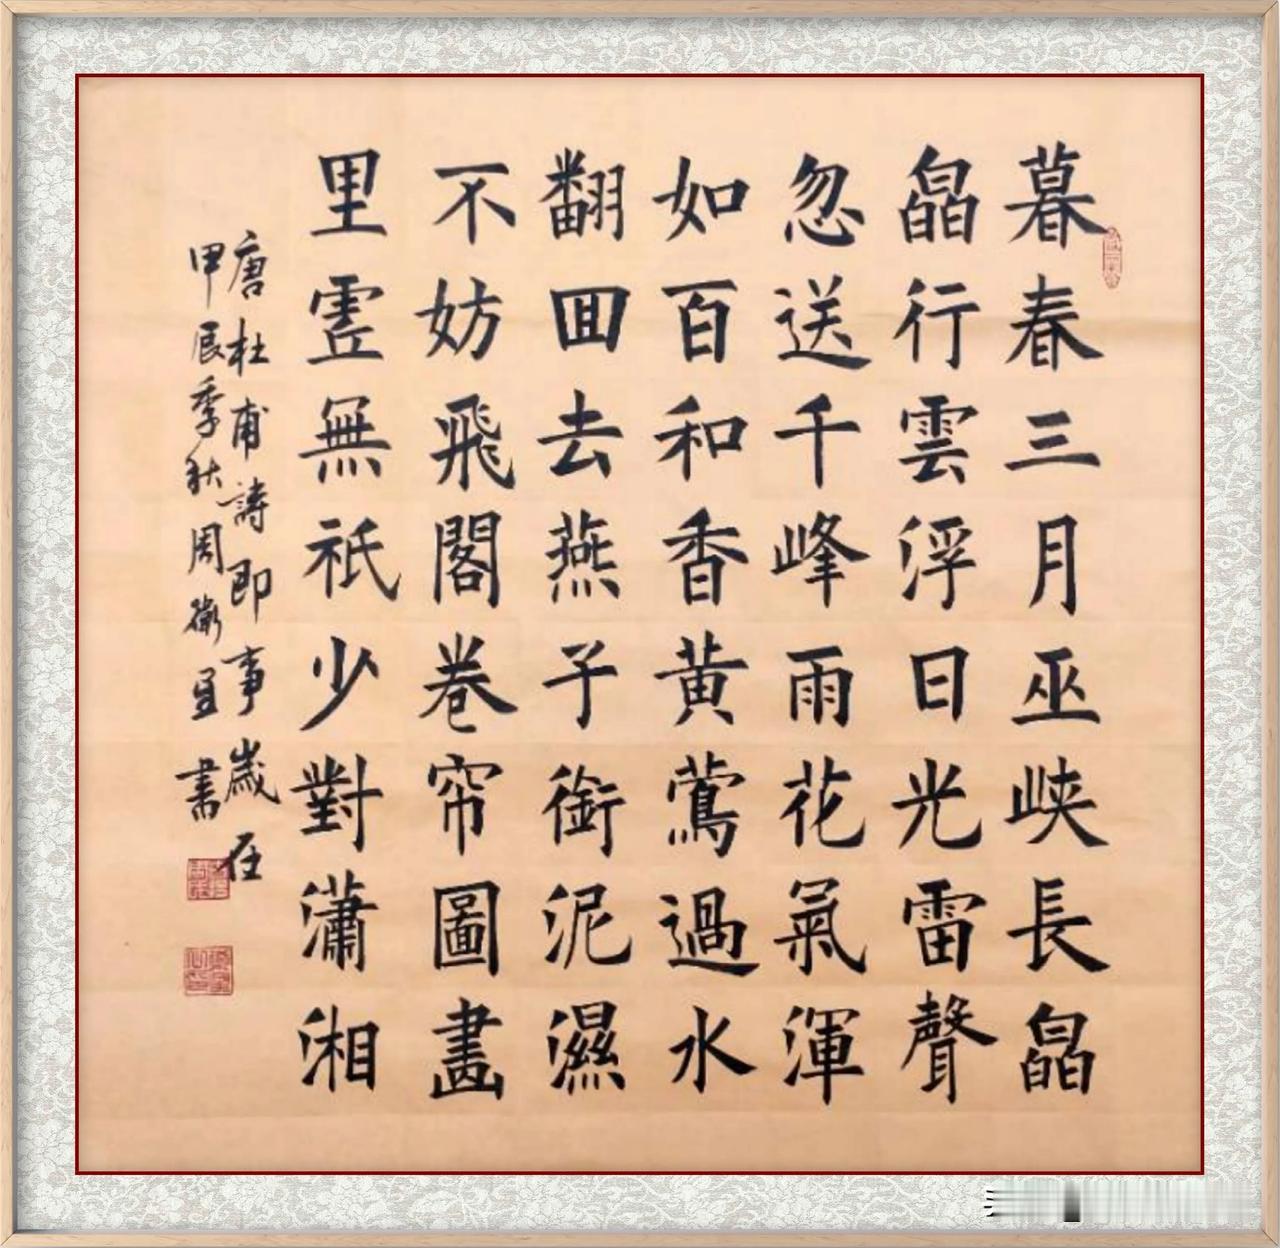 暮春三月巫峽長皛
皛行雲浮日光雷聲
忽送千峰雨花氣渾
如百和香黃鶯過水
翻回去燕子銜泥濕
不妨飛閣卷帘圖畫
里虛無祇少對瀟湘
唐杜甫詩即事歲在
甲辰季秋周衛星書